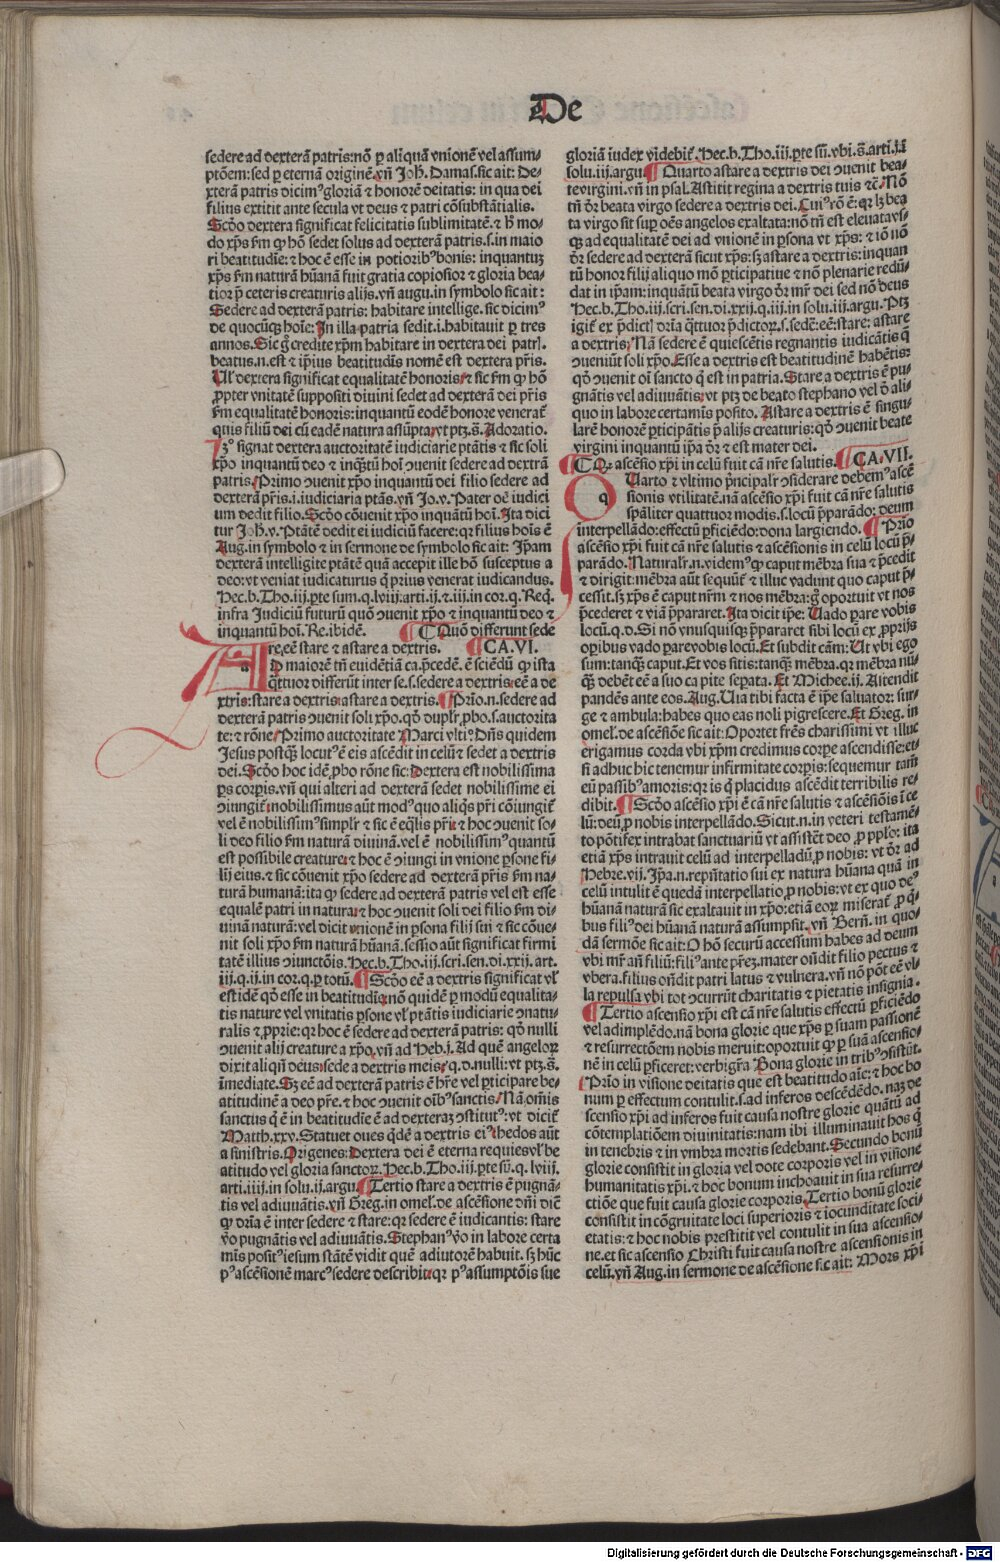 De
sedere ad dexterã patris: nõ ꝑ aliquã vnionẽ vel assum/
ptõem: sed ꝑ eternã originẽ. vñ Joh̃. Damas. sic ait: De/
xterã patris dicimꝰ gloriã ⁊ honorẽ deitatis: in qua dei
filius extitit ante secula vt deus ⁊ patri cõsubstãtialis.
Scďo dextera significat felicitatis sublimitatẽ. ⁊ h̃ mo/
do xp̃s ẜm ꝙ hõ sedet solus ad dexterã patris. s. in maio
ri beatitudie: ⁊ hoc ẽ esse in potioribꝰ bonis: inquantuꝫ
xp̃s ẜm naturã hũanã fuit gratia copiosior ⁊ gloria bea/
tior p̃ ceteris creaturis alijs. vñ augu. in symbolo sic ait:
Sedere ad dexterã patris: habitare intellige. sic dicimꝰ
de quocũqꝫ hoĩe: In illa patria sedit. i. habitauit ꝑ tres
annos. Sic g̃ credite xp̃m habitare in dextera dei patrꝭ.
beatus. n. est ⁊ ip̃ius beatitudĩs nomẽ est dextera p̃ris.
Ul̃ dextera significat equalitatẽ honoris: ⁊ sic ẜm ꝙ hõ
ꝓpter vnitatẽ suppositi diuini sedet ad dexterã dei p̃ris
ẜm equalitatẽ honoris: inquantũ eodẽ honore venerat̃
quis filiũ dei cũ eadẽ natura assũpta: vt ptꝫ. s̃. Adoratio.
Jꝫº signat dextera auctoritatẽ iudiciarie ptãtis ⁊ sic soli
xp̃o inquantũ deo ⁊ inq̃tũ hoĩ ↄuenit sedere ad dextrã
patris. Primo ↄuenit xp̃o inquantũ dei filio sedere ad
dexterã p̃ris. i. iudiciaria ptãs. vñ Jo. v. Pater oẽ iudici
um dedit filio. Scďo cõuenit xp̃o inquãtũ hoĩ. Ita dici
tur Joh̃. v. Ptãtẽ dedit ei iudiciũ facere: qꝛ filius hoĩs ẽ
Aug. in symbolo ⁊ in sermone de symbolo sic ait: Ip̃am
dexterã intelligite ptãtẽ quã accepit ille hõ susceptus a
deo: vt veniat iudicaturus q̃ prius venerat iudicandus.
Hec. b. Tho. iij. ꝑte sum. q. lviij. arti. ij. ⁊ iij. in cor. q. Req̃.
infra Judiciũ futurũ quõ ↄuenit xp̃o ⁊ inquantũ deo ⁊
inquantũ hoĩ. Re. ibidẽ. ¶ Quõ differunt sede
re, eẽ stare ⁊ astare a dextris. ¶ CA. VI.
Ad maiorẽ tñ euidẽtiã ca. p̃cedẽ. ẽ sciẽdũ ꝙ ista
q̃ttuor differũt inter se. s. sedere a dextris: eẽ a de
xtris: stare a dextris: astare a dextris. ¶ Prĩo. n. sedere ad
dexterã patris ↄuenit soli xp̃o. qď duplr̃ ꝓbo. s. auctorita
te: ⁊ rõne. Primo auctoritate Marci vltiº Dñs quidem
Jesus postq̃ꝫ locutꝰ ẽ eis ascẽdit in celũ ⁊ sedet a dextris
dei. Scďo hoc idẽ ꝓbo rõne sic: Dextera est nobilissima
ꝑs corꝑis. vñ qui alteri ad dexterã sedet nobilissime ei
ↄiungit̃: nobilissimus aũt modꝰ quo aliq̃s p̃ri cõiungit̃
vel ẽ nobilissimꝰ simplr̃ ⁊ sic ẽ eq̃lis p̃ri: ⁊ hoc ↄuenit so/
li deo filio ẜm naturã diuinã. vel ẽ nobilissimꝰ quantũ
est possibile creature: ⁊ hoc ẽ ↄiungi in vnione ꝑsone fi/
lij eius. ⁊ sic cõuenit xp̃o sedere ad dexterã p̃ris ẜm na/
turã humanã: ita ꝙ sedere ad dexterã patris vel est esse
equalẽ patri in natura: ⁊ hoc ↄuenit soli dei filio ẜm di/
uinã naturã: vel dicit vnionẽ in ꝑsona filij sui ⁊ sic cõue/
nit soli xp̃o ẜm naturã hũanã. sessio aũt significat firmi
tatẽ illius ↄiunctõis. Hec. b. Tho. iij. scri. sen. di. xxij. art.
iij. q. ij. in cor. q. ꝑ totũ. ¶ Scďo eẽ a dextris significat vl̃
est idẽ qď esse in beatitudĩe: nõ quidẽ ꝑ modũ equalita/
tis nature vel vnitatis ꝑsone vl̃ ptãtis iudiciarie ↄnatu/
ralis ⁊ ꝓprie: qꝛ hoc ẽ sedere ad dexterã patris: qď nulli
ↄuenit alij creature a xp̃o. vñ ad Heb. j. Ad quẽ angeloꝝ
dixit aliqñ deus: sede a dextris meis: q. d. nulli: vt ptꝫ. s̃.
ĩmediate. Sꝫ eẽ ad dexterã patris ẽ hr̃e vel ꝑticipare be/
atitudinẽ a deo p̃re. ⁊ hoc ↄuenit oĩbꝰ sanctis. Nã om̃is
sanctus q̃ ẽ in beatitudie ẽ ad dexteraꝫ ↄstitutꝰ: vt dicit̃
Matth. xxv. Statuet oues q̃dẽ a dextris eiꝰ: hedos aũt
a sinistris. Origenes: Dextera dei ẽ eterna requies vl̃ be
atitudo vel gloria sanctoꝝ. Hec. b. Tho. iij. ꝑte sũ. q. lviij.
arti. iiij. in solu. ij. argu. ¶ Tertio stare a dextris ẽ pugnã/
tis vel adiuuãtis. vñ Greg. in omel. de ascẽsione dñi dicẽ
ꝙ drĩa ẽ inter sedere ⁊ stare: qꝛ sedere ẽ iudicantis: stare
ṽo pugnãtis vel adiuuãtis. Stephanꝰ ṽo in labore certa
mĩs positꝰ iesum stãtẽ vidit quẽ adiutorẽ habuit. sꝫ hũc
pꝰ ascẽsionẽ marcꝰ sedere describit: qꝛ pꝰ assumptõis sue
gloriã iudex videbit̃. Hec. b. Tho. iij. ꝑte sũ. vbi. s̃. arti. j. ĩ
solu. iij. argu. ¶ Quarto astare a dextris dei ↄuenit bea/
te virgini. vñ in psal. Astitit regina a dextris tuis ⁊c̃. Nõ
tñ dr̃ beata virgo sedere a dextris dei. Cuiꝰ rõ ẽ: qꝛ lꝫ bea
ta virgo sit suꝑ oẽs angelos exaltata: nõ tñ est eleuata vs/
qꝫ ad equalitatẽ dei ad vnionẽ in ꝑsona vt xp̃s: ⁊ iõ nõ
dr̃ sedere ad dexterã sicut xp̃s: sꝫ astare a dextris: inquan
tũ honor filij aliquo mõ ꝑticipatiue ⁊ nõ plenarie redũ/
dat in ip̃am: inquãtũ beata virgo dr̃ mr̃ dei sed nõ deus
Hec. b. Tho. iij. scri. sen. di. xxij. q. iij. in solu. iij. argu. Ptꝫ
igit̃ ex p̃dictꝭ drĩa q̃ttuor p̃dictoꝝ. s. sedẽ: eẽ: stare: astare
a dextris: Nã sedere ẽ quiescẽtis regnantis iudicãtis q̃
ↄueniũt soli xp̃o. Esse a dextris est beatitudinẽ habẽtis:
qď ↄuenit oĩ sancto q̃ est in patria. Stare a dextris ẽ pu/
gnãtis vel adiuuãtis: vt ptꝫ de beato stephano vel ď ali/
quo in labore certamĩs posito. Astare a dextris ẽ singu/
larẽ honorẽ ꝑticipãtis p̃ alijs creaturis: qď ↄuenit beate
virgini inquantũ ip̃a dr̃ ⁊ est mater dei.
¶ Qꝛ ascẽsio xp̃i in celũ fuit cã nr̃e salutis. ¶ CA. VII.
Quarto ⁊ vltimo p̃ncipalr̃ ↄsiderare debemꝰ ascẽ
sionis vtilitatẽ. nã ascẽsio xp̃i fuit cã nr̃e salutis
sp̃aliter quattuor modis. s. locũ p̃parãdo: deum
interpellãdo: effectũ ꝑficiẽdo: dona largiendo. ¶ Prĩo
ascẽsio xp̃i fuit cã nr̃e salutis ⁊ ascẽsionis in celũ locũ p̃/
parãdo. Naturalr̃. n. videmꝰ ꝙ caput mẽbra sua ⁊ p̃cedit
⁊ dirigit: mẽbra aũt sequũt̃ ⁊ illuc vadunt quo caput p̃/
cessit. sꝫ xp̃s ẽ caput nr̃m ⁊ nos mẽbra: g̃ oportuit vt nos
p̃cederet ⁊ viã p̃pararet. Ita dicit ip̃e: Uado ꝑare vobis
locũ. q. d. Si nõ vnusquisqꝫ p̃pararet sibi locũ ex ꝓprijs
oꝑibus vado parevobis locũ. Et subdit cãm: Ut vbi ego
sum: tanq̃ꝫ caput. Et vos sitis: tanq̃ꝫ mẽbra. qꝛ mẽbra nũ/
qꝫ debẽt eẽ a suo ca pite seꝑata. Et Michee. ij. Ascendit
pandẽs ante eos. Aug. Uia tibi facta ẽ ip̃e saluator: sur/
ge ⁊ ambula: habes quo eas noli pigrescere. Et Greg. in
omel. de ascẽsiõe sic ait: Oportet frẽs charissimi vt illuc
erigamus corda vbi xp̃m credimus corꝑe ascendisse: et
si adhuc hic tenemur infirmitate corꝑis: sequemur tam̃
eũ passibꝰ amoris: qꝛ is q̃ placidus ascẽdit terribilis re/
dibit. ¶ Scďo ascẽsio xp̃i ẽ cã nr̃e salutis ⁊ ascẽsiõis ĩ ce
lũ: deũ ꝓ nobis interpellãdo. Sicut. n. in veteri testamẽ/
to põtifex intrabat sanctuariũ vt assistẽt deo ꝓ pplo: ita
etiã xp̃s intrauit celũ ad interpellãdũ ꝓ nobis: vt dr̃ ad
Hebre. vij. Ip̃a. n. rep̃ñtatio sui ex natura hũana quã in
celũ intulit ẽ quedã interpellatio ꝓ nobis: vt ex quo deꝰ
hũanã naturã sic exaltauit in xp̃o: etiã eoꝝ miserat̃ ꝓ q̃/
bus filiꝰ dei hũanã naturã assumpsit. vñ Berñ. in quo/
dã sermõe sic ait: O hõ securũ accessum habes ad deum
vbi mr̃ añ filiũ: filiꝰ ante p̃rẽ. mater oñdit filio pectus ⁊
vbera. filius oñdit patri latus ⁊ vulnera. vñ nõ põt eẽ vl/
la repulsa vbi tot ↄcurrũt charitatis ⁊ pietatis insignia.
¶ Tertio ascensio xp̃i est cã nr̃e salutis effectũ ꝑficiẽdo
vel adimplẽdo. nã bona glorie que xp̃s ꝑ suam passionẽ
⁊ resurrectõem nobis meruit: oportuit ꝙ ꝑ suã ascensio/
nẽ in celũ ꝑficeret: verbigr̃a Bona glorie in tribꝰ ↄsistũt.
Prĩo in visione deitatis que est beatitudo aĩe: ⁊ hoc bo
num ꝑ effectum contulit. s. ad inferos descẽdẽdo. naꝫ de
scensio xp̃i ad inferos fuit causa nostre glorie quãtũ ad
cõtemplatiõem diuinitatis: nam ibi illuminauit hos q̃
in tenebris ⁊ in vmbra mortis sedebant. Secundo bonũ
glorie consistit in gloria vel dote corporis vel in visione
humanitatis xp̃i. ⁊ hoc bonum inchoauit in sua resurre/
ctiõe que fuit causa glorie corporis. Tertio bonũ glorie
consistit in cõgruitate loci superioris ⁊ iocunditate soci/
etatis: ⁊ hoc nobis prestitit vel contulit in sua ascensio/
ne. et sic ascensio Christi fuit causa nostre ascensionis in
celũ. vñ Aug. in sermone de ascẽsione sic ait: Mors xp̃i
Digitalisierung gefördert durch die Deutsche Forschungsgemeinschaft - DFG